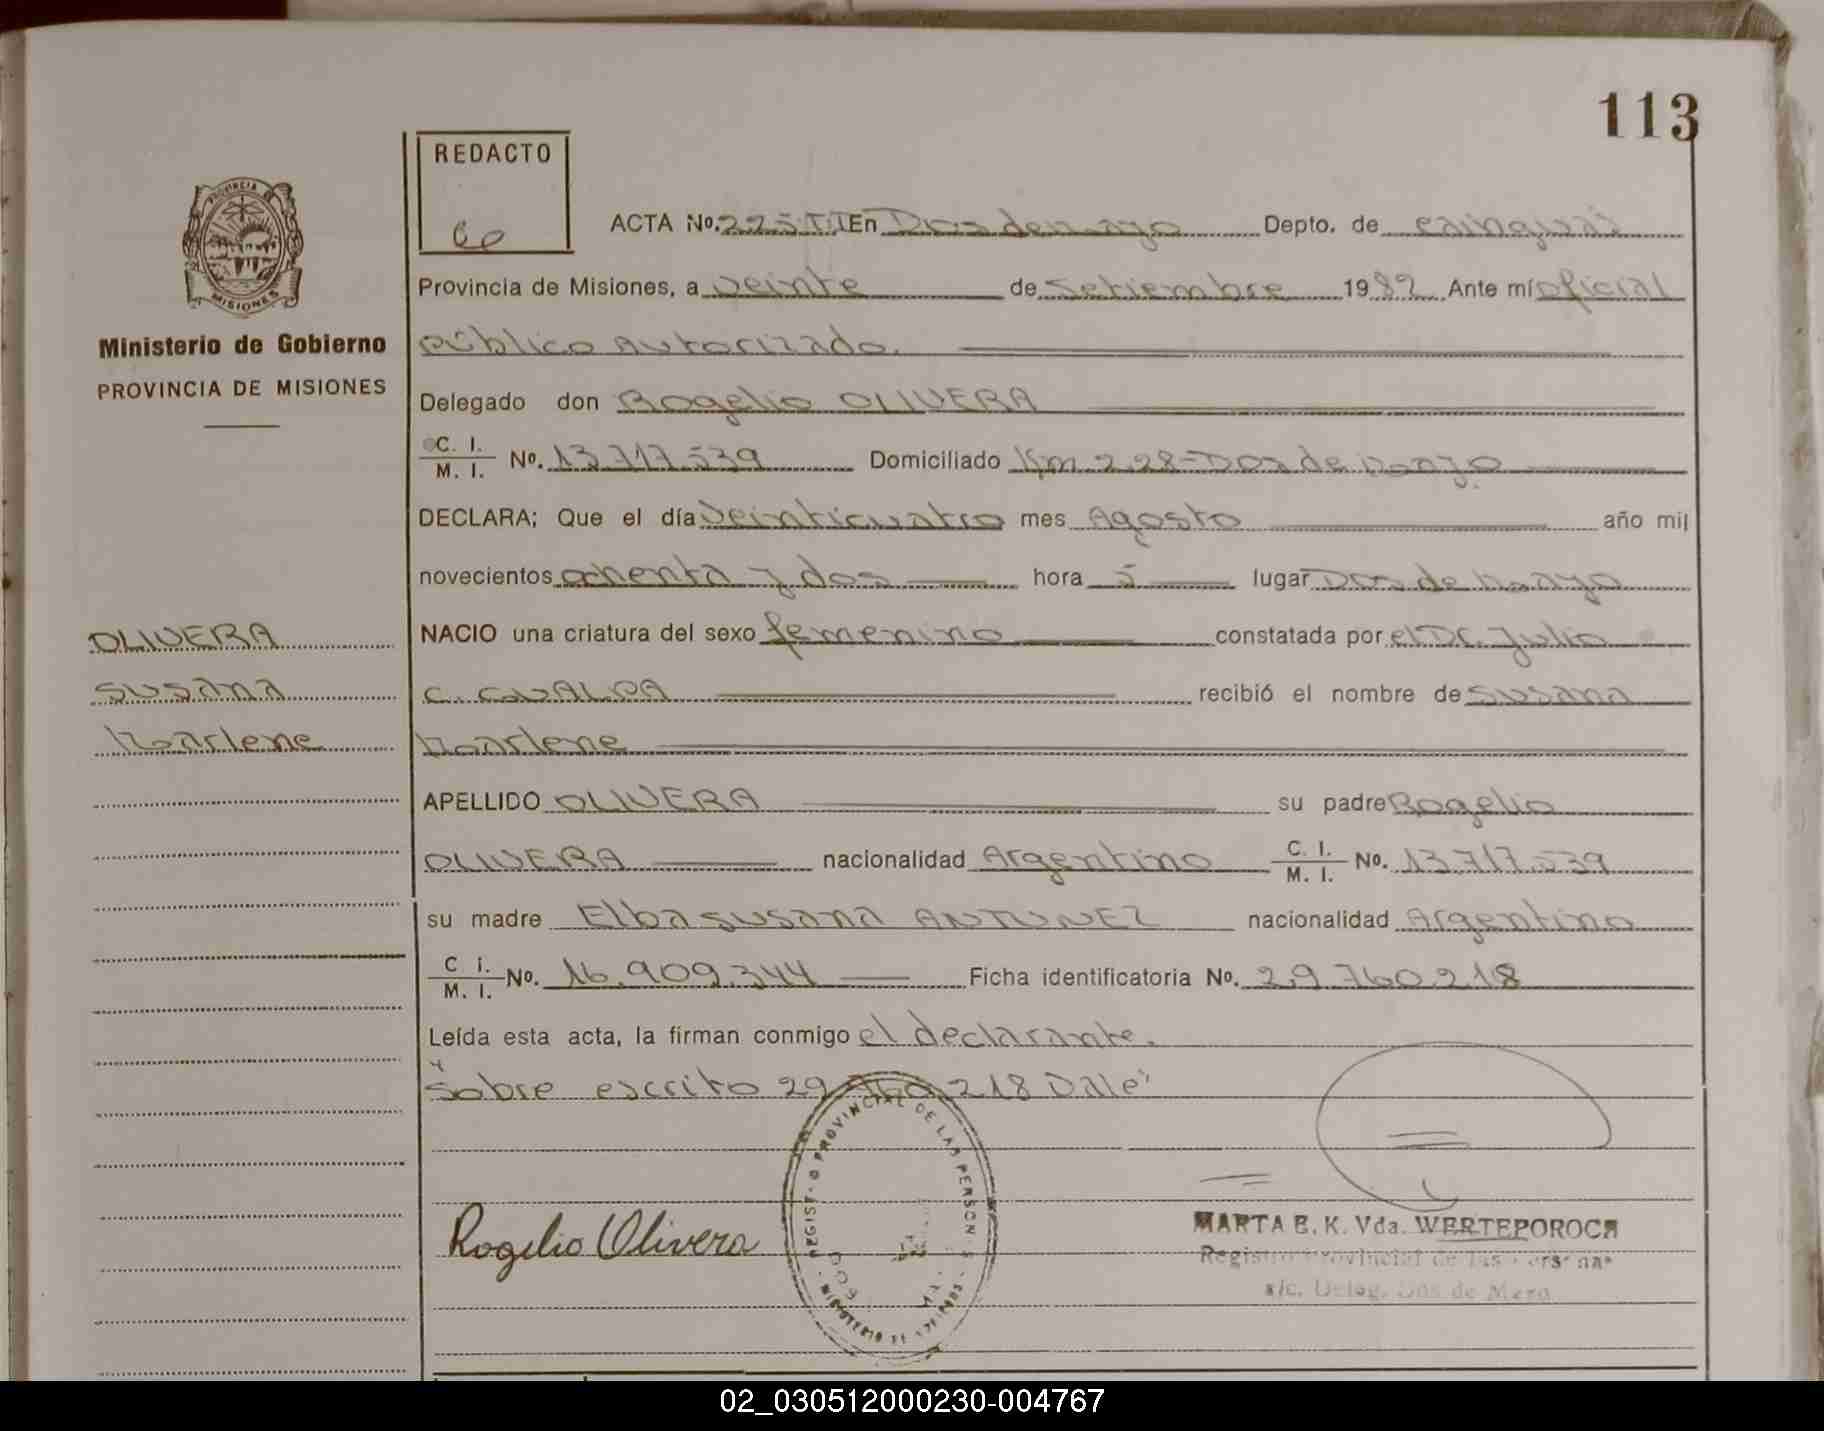 113
REDACTO
ACTA Nº. 225 T.I En Dos de mayo Depto. de Cainguás
Provincia de Misiones, a veinte de setiembre 1982 Ante mí oficial
Ministerio de Gobierno público Autorizado.
PROVINCIA DE MISIONES
Delegado don Rogelio OLIVERA
C. I. M. I. Nº. 13.717.539 Domiciliado Km 228-Dos de mayo
DECLARA; Que el día veinticuatro mes Agosto año mil
novecientos ochenta y dos hora 5 lugar Dos de mayo
OLIVERA NACIO una criatura del sexo femenino constatada por el Dr. Julio
susana C. recibió el nombre de susana
Marlene Marlene
APELLIDO OLIVERA su padre Rogelio
OLIVERA nacionalidad Argentino C. I. M. I. Nº. 13.717.539
su madre Elba susana ANTUNEZ nacionalidad Argentino
C I. M. I. Nº. 16.909.344 Ficha identificatoria Nº. 29.760.218
Leída esta acta, la firman conmigo el declarante.
sobre escrito 29 760 218 Vale
REGISTRO PROVINCIAL DE LAS PERSONAS
Rogelio Olivera
MARTA E. K. Vda. WERTEPOROCH
Registro Provincial de las Personas
a/c. Deleg. Dos de Mayo
02_030512000230-004767